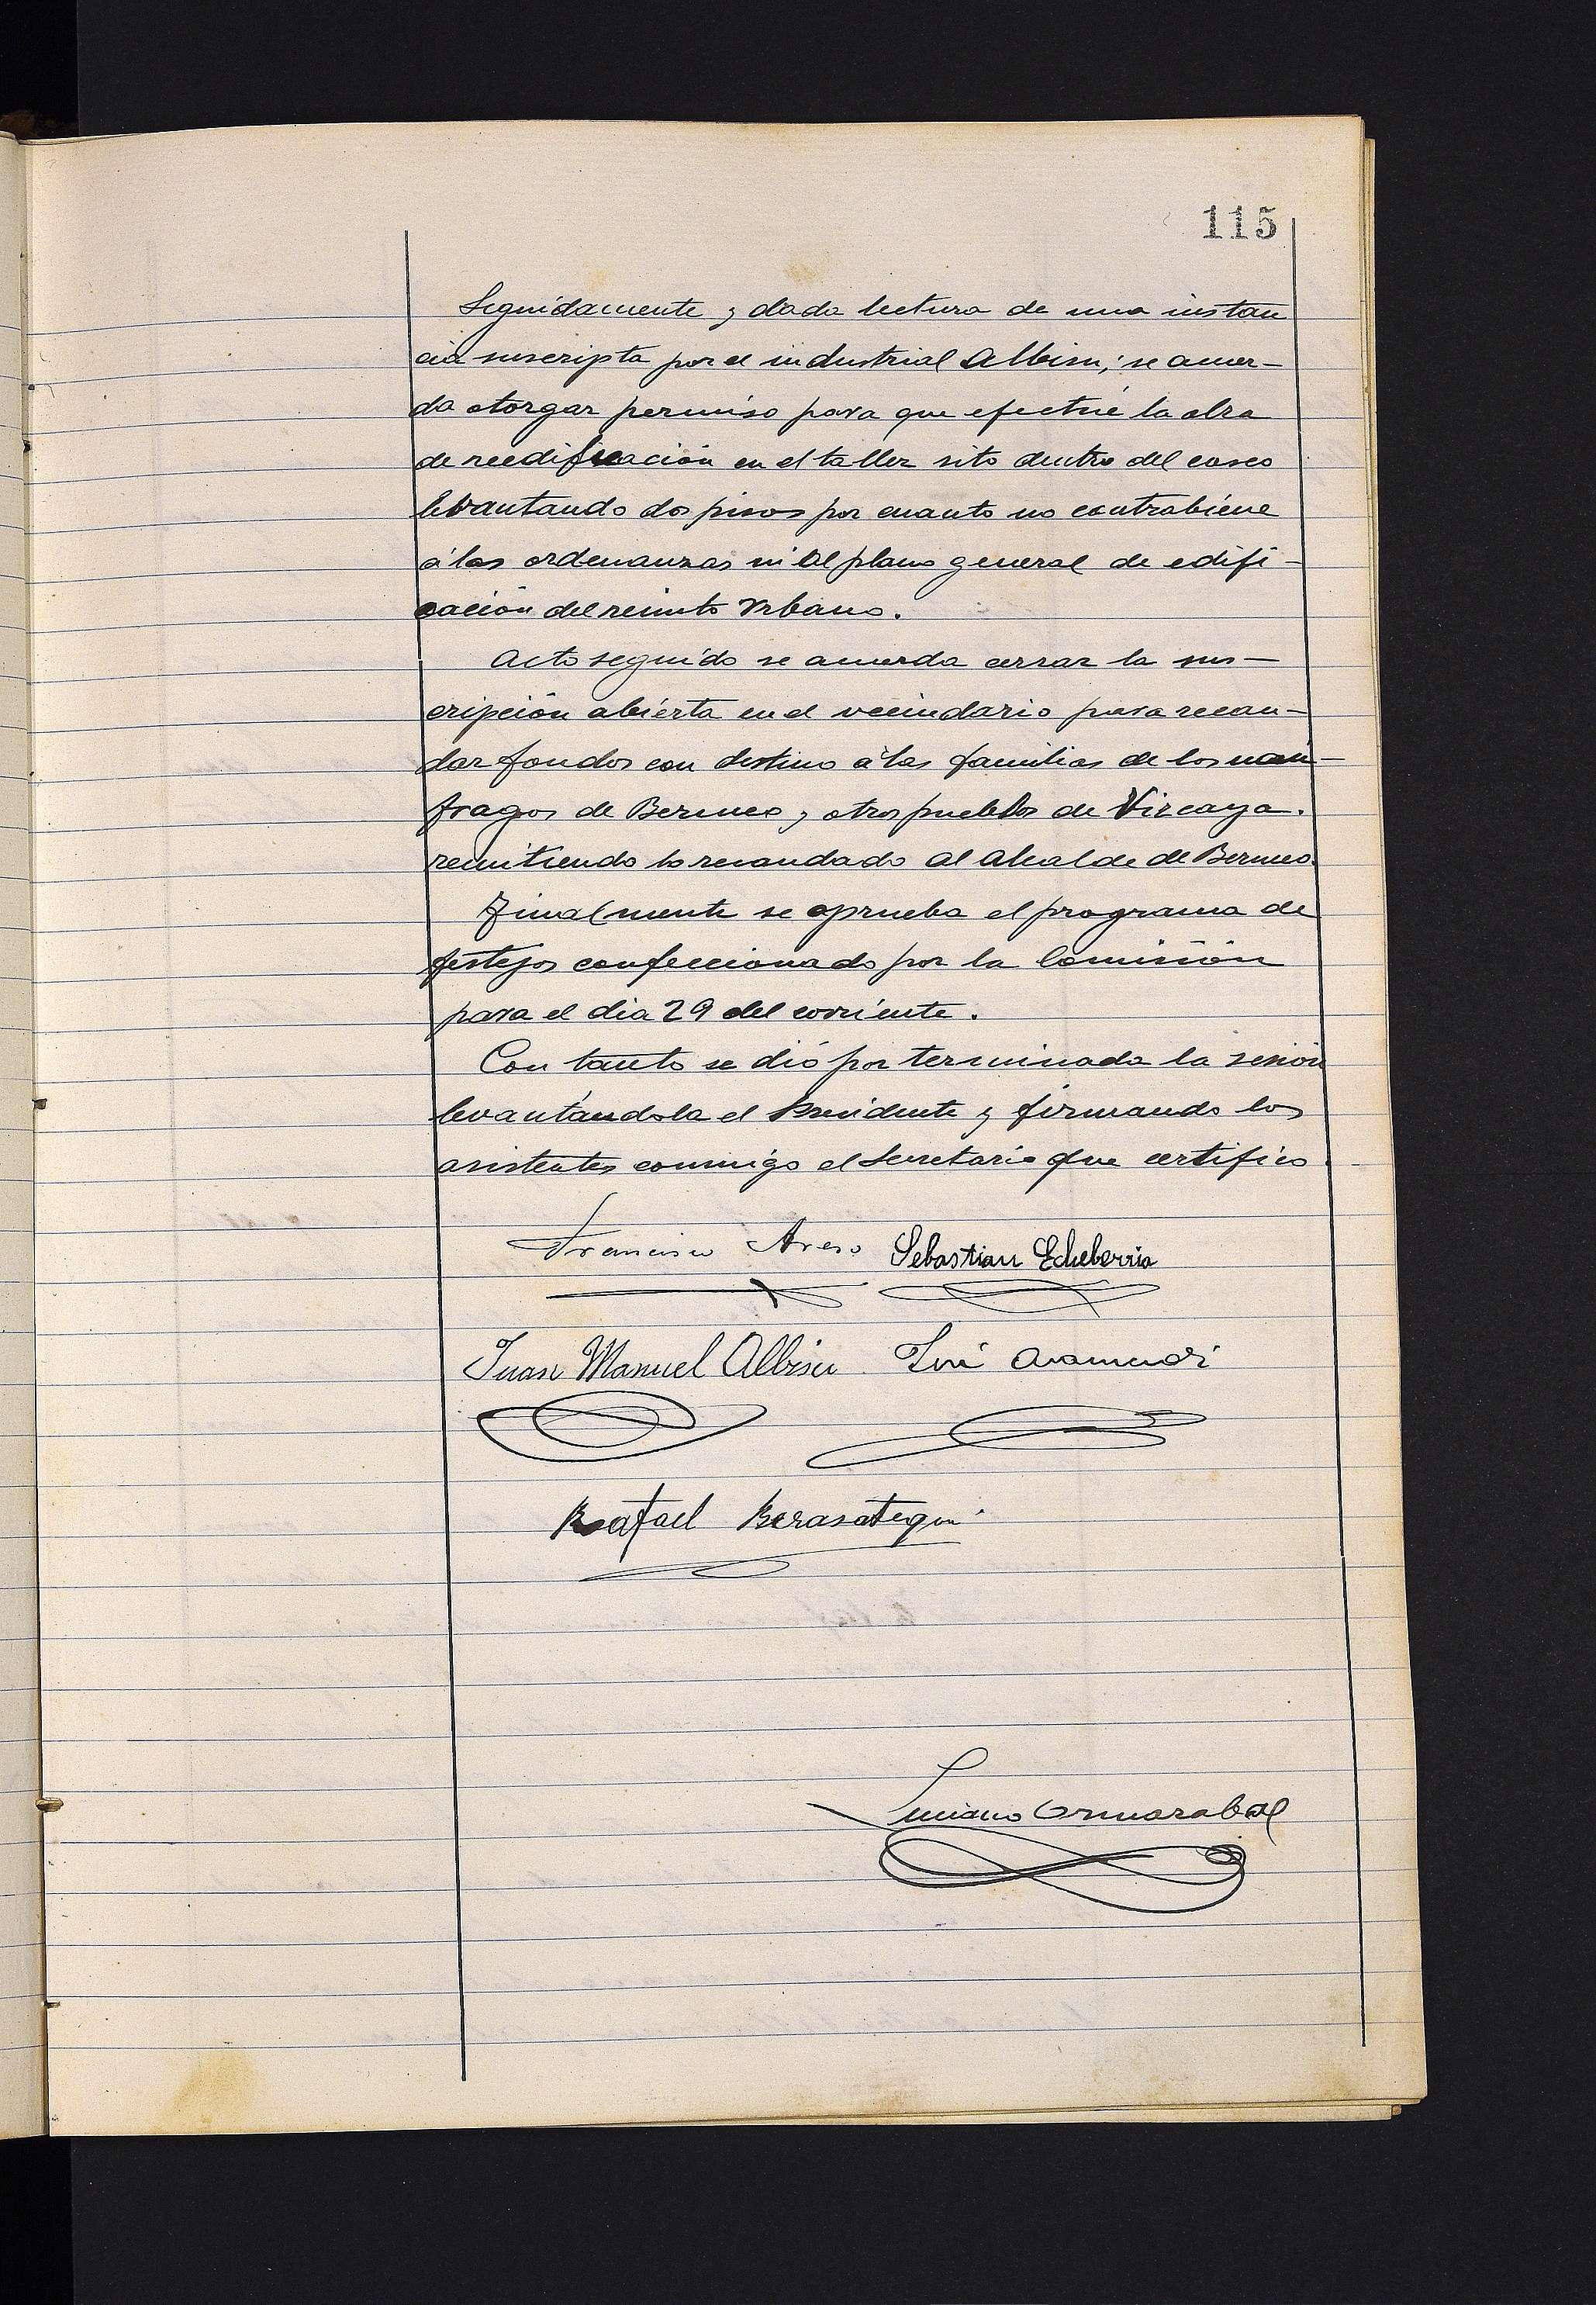 115
Seguidamente y dada lectura de una instan
cia suscripta por el industrial Albisu; se acuer-
da otorgar permiso para que efectúe la obra
de reedificación en el taller sito dentro del casco
levantando dos pisos por cuanto no contrabiene
á las ordenanzas ni al plano general de edifi-
cación del recinto Urbano.
Acto seguido se acuerda cerrar la sus-
cripción abierta en el vecindario para recau-
dar fondos con destino á las familias de los naú-
fragos de Bermeo y otros pueblos de Vizcaya.
remitiendo lo recaudado al Alcalde de Bermeo.
Finalmente se aprueba el programa de
festejos confeccionado por la Comisión
para el dia 29 del corriente.
Con tanto se dió por terminada la sesión
levantándola el Presidente y firmando los
asistentes conmigo el Secretario que certifico.
Francisco Areso Sebastian Echeberria
Juan Manuel Albisu José Aramendi
Rafael Berasategui
Luciano Ormazabal